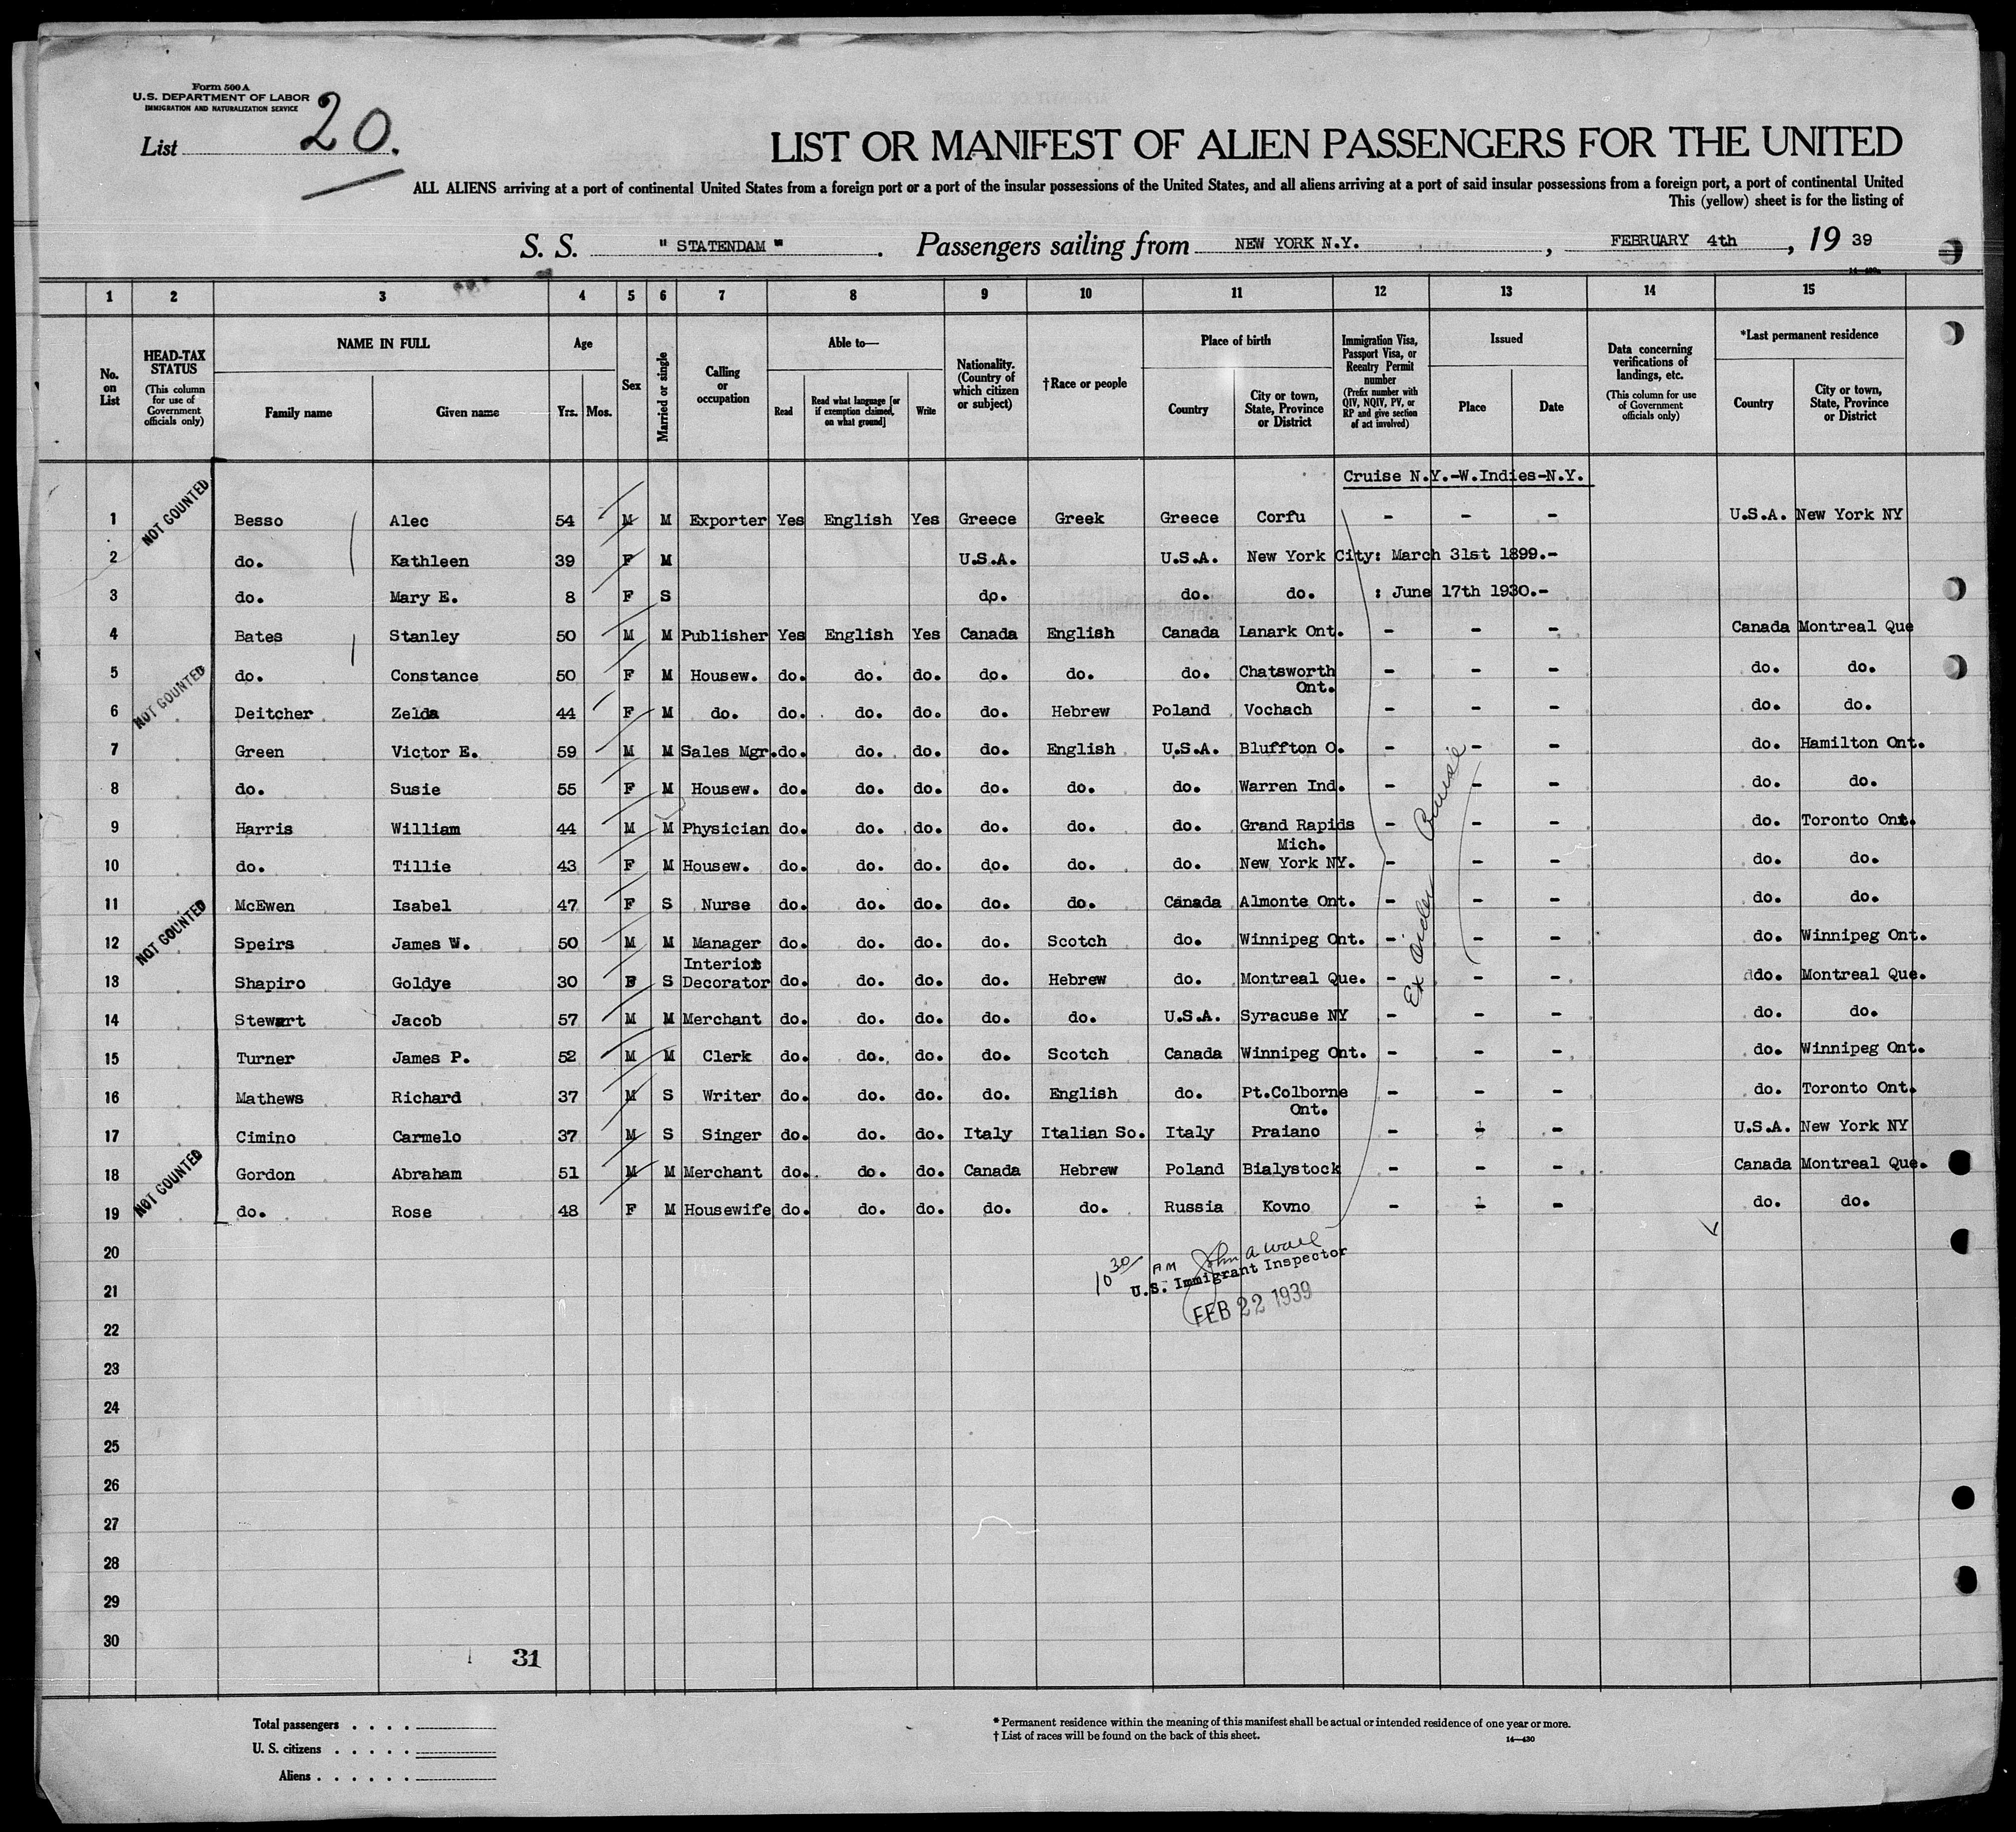 Form 500 A
U.S. DEPARTMENT OF LABOR
IMMIGRATION AND NATURALIZATION SERVICE
List 20.
LIST OR MANIFEST OF ALIEN PASSENGERS FOR THE UNITED
ALL ALIENS arriving at a port of continental United States from a foreign port or a port of the insular possessions of the United States, and all aliens arriving at a port of said insular possessions from a foreign port, a port of continental United
This (yellow) sheet is for the listing of
S. S. " STATENDAM " . Passengers sailing from NEW YORK N.Y. , FEBRUARY 4th , 19 39
1 2 3 4 5 6 7 8 9 10 11 12 13 14 15
No. on List
HEAD-TAX STATUS (This column for use of Government officials only)
NAME IN FULL Family name Given name
Age Yrs. Mos.
Sex
Married or single
Calling or occupation
Able to— Read Read what language [or if exemption claimed, on what ground] Write
Nationality. (Country of which citizen or subject)
†Race or people
Place of birth Country City or town, State, Province or District
Immigration Visa, Passport Visa, or Reentry Permit number (Prefix number with QIV, NQIV, PV, or RP and give section of act involved)
Issued Place Date
Data concerning verifications of landings, etc. (This column for use of Government officials only)
*Last permanent residence Country City or town, State, Province or District
Cruise N.Y.-W.Indies-N.Y.
NOT COUNTED
1 Besso Alec 54 M M Exporter Yes English Yes Greece Greek Greece Corfu - - - U.S.A. New York NY
2 do. Kathleen 39 F M U.S.A. U.S.A. New York City: March 31st 1899.-
3 do. Mary E. 8 F S do. do. do. : June 17th 1930.-
4 Bates Stanley 50 M M Publisher Yes English Yes Canada English Canada Lanark Ont. - - - Canada Montreal Que
NOT COUNTED
5 do. Constance 50 F M Housew. do. do. do. do. do. do. Chatsworth Ont. - - - do. do.
6 Deitcher Zelda 44 F M do. do. do. do. do. Hebrew Poland Vochach - - - do. do.
7 Green Victor E. 59 M M Sales Mgr. do. do. do. do. English U.S.A. Bluffton O. - - - do. Hamilton Ont.
8 do. Susie 55 F M Housew. do. do. do. do. do. do. Warren Ind. - - - do. do.
9 Harris William 44 M M Physician do. do. do. do. do. do. Grand Rapids Mich. - - - do. Toronto Ont.
10 do. Tillie 43 F M Housew. do. do. do. do. do. do. New York NY. - - - do. do.
11 McEwen Isabel 47 F S Nurse do. do. do. do. do. Canada Almonte Ont. - - - do. do.
NOT COUNTED
12 Speirs James W. 50 M M Manager do. do. do. do. Scotch do. Winnipeg Ont. - - - do. Winnipeg Ont.
13 Shapiro Goldye 30 F S Interior Decorator do. do. do. do. Hebrew do. Montreal Que. - - - do. Montreal Que.
14 Stewart Jacob 57 M M Merchant do. do. do. do. do. U.S.A. Syracuse NY - - - do. do.
15 Turner James P. 52 M M Clerk do. do. do. do. Scotch Canada Winnipeg Ont. - - - do. Winnipeg Ont.
16 Mathews Richard 37 M S Writer do. do. do. do. English do. Pt.Colborne Ont. - - - do. Toronto Ont.
17 Cimino Carmelo 37 M S Singer do. do. do. Italy Italian So. Italy Praiano - - - U.S.A. New York NY
18 Gordon Abraham 51 M M Merchant do. do. do. Canada Hebrew Poland Bialystock - - - Canada Montreal Que.
NOT COUNTED
19 do. Rose 48 F M Housewife do. do. do. do. do. Russia Kovno - - - do. do.
Cruise
20
10 30 AM John A Wall
U.S. Immigrant Inspector
21
FEB 22 1939
22
23
24
25
26
27
28
29
30
31
Total passengers . . . .
U. S. citizens . . . . .
Aliens . . . . . .
* Permanent residence within the meaning of this manifest shall be actual or intended residence of one year or more.
† List of races will be found on the back of this sheet.
14—430